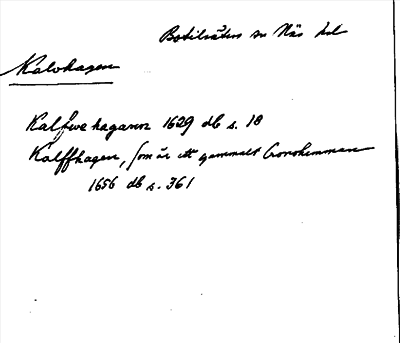 Botilsäters sn Näs hd
Kalvhagen
Kalfwe hagann 1629 db s. 18
Kalffhagen, som är ett gammalt Cronohemman
1656 db s. 361